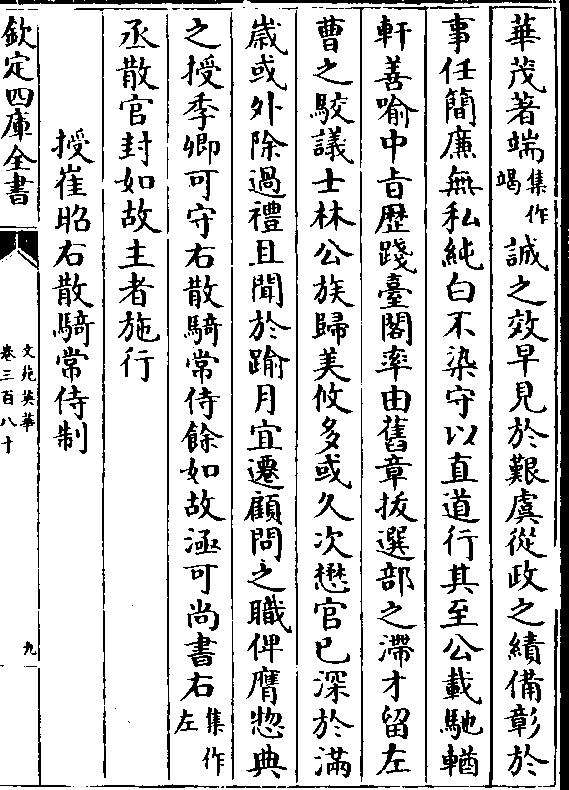 華茂著端集作竭誠之效早見於艱虞從政之績備彰於
事任簡廉無私純白不染守以直道行其至公載馳輶
軒善喻中㫖歴踐臺閣率由舊章拔選部之滯才留左
曹之駮議士林公族歸美攸多或久次懋官已深於滿
歲或外除過禮且聞於踰月宜遷顧問之職俾膺惣典
之授季卿可守右散騎常侍餘如故涵可尚書右集作左
丞散官封如故主者施行
授崔昭右散騎常侍制
欽定四庫全書
文苑英華
卷三百八十
九